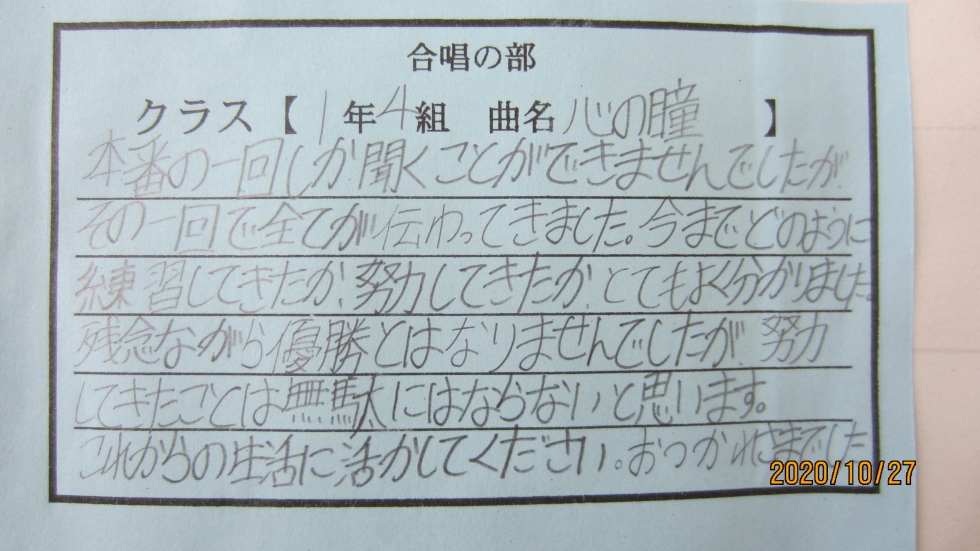 合唱の部
クラス【1年4組 曲名 心の瞳】
本番の一回しか聞くことができませんでしたが、
その一回で全てが伝わってきました。今までどのように
練習してきたか、努力してきたか、とてもよく分かりました。
残念ながら優勝とはなりませんでしたが、努力
してきたことは無駄にはならないと思います。
これからの生活に活かしてください。おつかれさまでした
2020/10/27